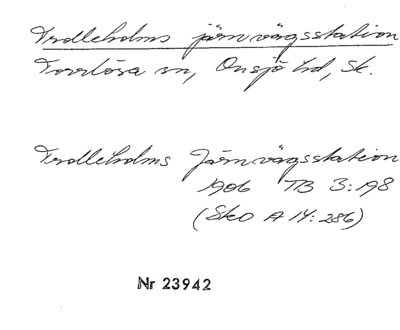 Trolleholms järnvägsstation
Torrlösa sn, Onsjö hd, Sk.
Trolleholms Järnvägsstation
1906 TB 3:198
(Sko A 14:286)
Nr 23942